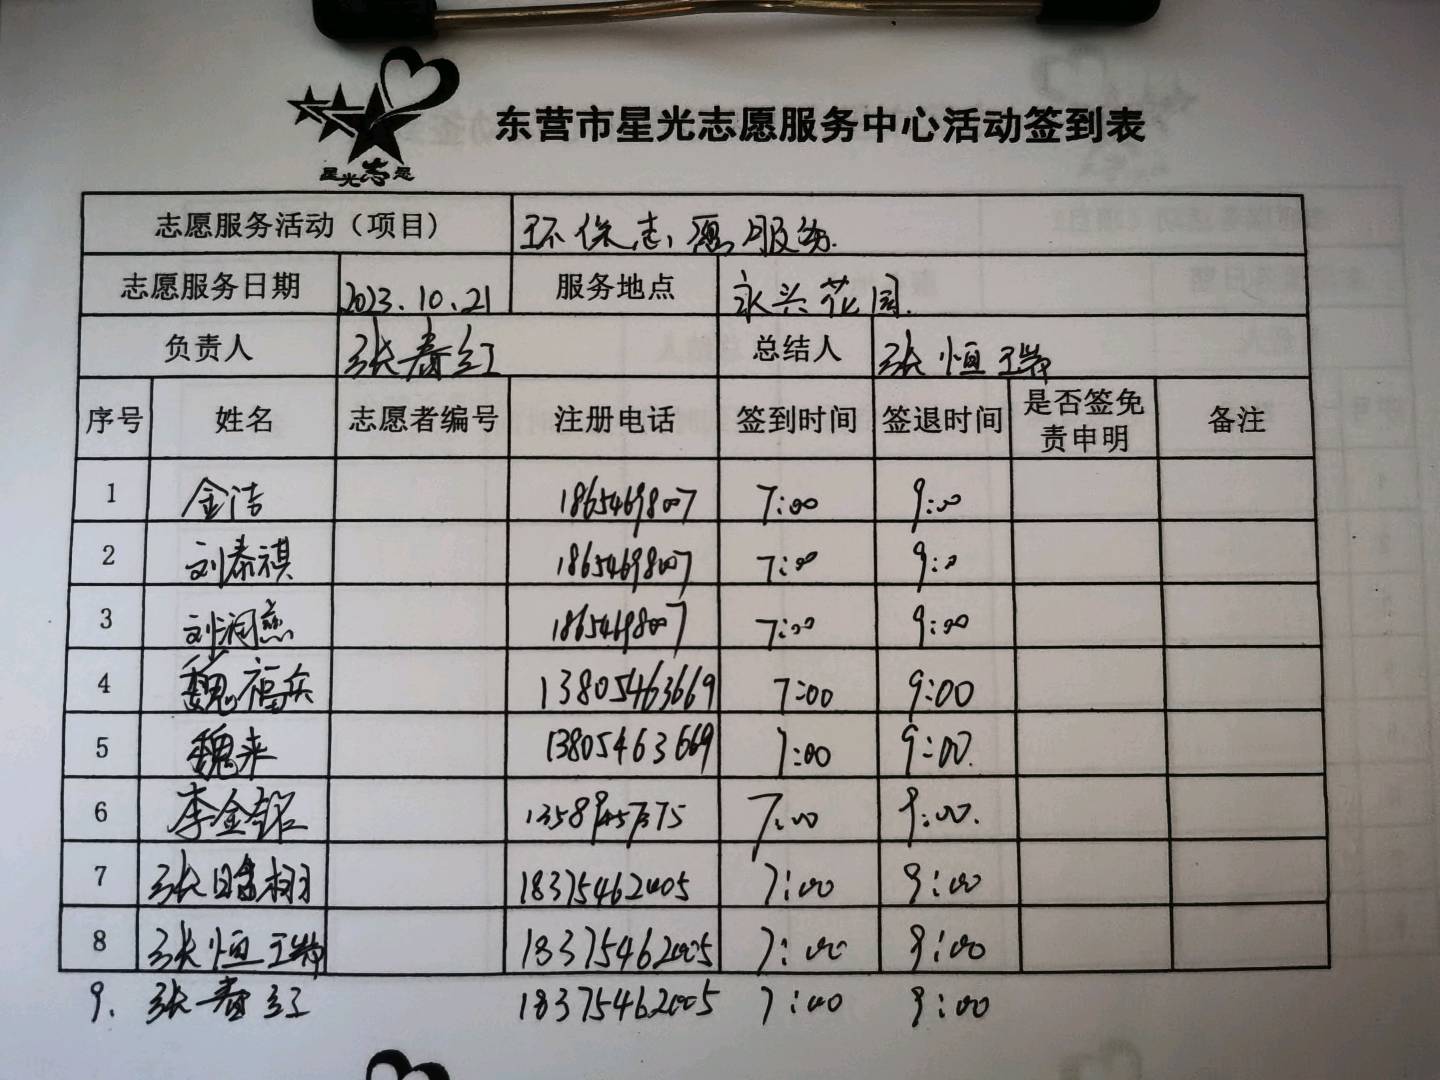 星光志愿
东营市星光志愿服务中心活动签到表
志愿服务活动（项目） 环保志愿服务.
志愿服务日期 2023.10.21 服务地点 永兴花园.
负责人 张春红 总结人 张恒瑞
序号 姓名 志愿者编号 注册电话 签到时间 签退时间 是否签免责申明 备注
1 金洁 18654698007 7:00 9:00
2 刘泰祺 18654698007 7:00 9:00
3 刘润燕 18654698007 7:00 9:00
4 魏福兵 13805463669 7:00 9:00
5 魏来 13805463669 7:00 9:00.
6 李金铭 7:00 9:00.
7 张晧栩 18375462005 7:00 9:00
8 张恒瑞 18375462005 7:00 9:00
9. 张春红 18375462005 7:00 9:00